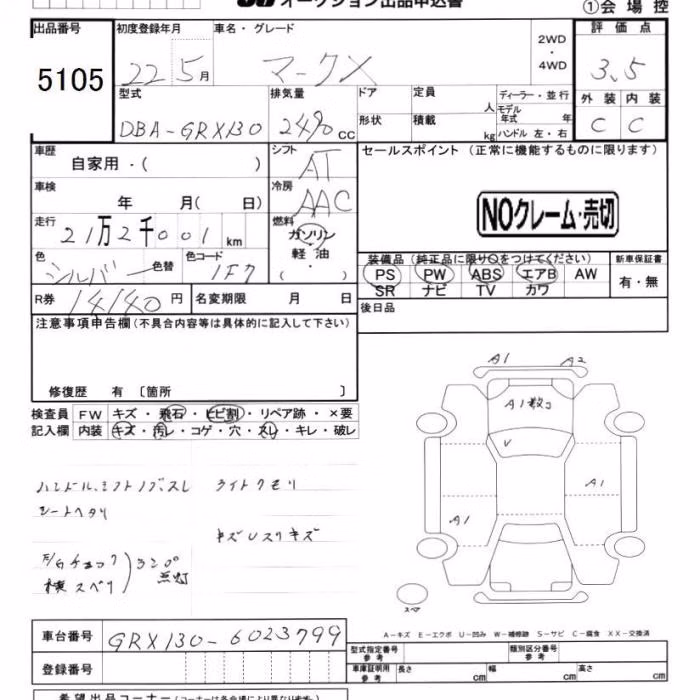 オークション出品申込書
①会場控
出品番号 初度登録年月 車名・グレード 2WD・4WD 評価点
5105 22年5月 マークX 3.5
型式 排気量 ドア 定員 人 ディーラー・並行 外装 内装
DBA-GRX130 2490cc 形状 積載 kg モデル年式 年 ハンドル 左・右 C C
車歴 自家用・( ) シフト AT セールスポイント (正常に機能するものに限ります)
車検 年 月( 日) 冷房 AAC
NOクレーム・売切
走行 21万2千001km 燃料 ガソリン・軽油・( )
色 シルバー 色替 色コード 1F7
装備品(純正品に限り○をつけてください) 新車保証書
PS PW ABS エアB AW 有・無
SR ナビ TV カワ
R券 14140円 名変期限 月 日 後日品
注意事項申告欄(不具合内容等は具体的に記入して下さい)
修復歴 有 〔箇所 〕
検査員 FW キズ・飛石・ヒビ割・リペア跡・×要
記入欄 内装 キズ・汚レ・コゲ・穴・スレ・キレ・破レ
ハンドル、シフトノブ、スレ ライトクモリ
シートヘタリ
キズ Uスリキズ
チェック
横スベリ
点灯
A1 A2
A1数コ
V
A1
A1
スペア
A-キズ E-エクボ U-凹み W-補修跡 S-サビ C-腐食 XX-交換済
車台番号 GRX130-6023799 型式指定番号 参考 類別区分番号 参考
登録番号 車庫証明用 参考 長さ cm 幅 cm 高さ cm
希望出品コーナー